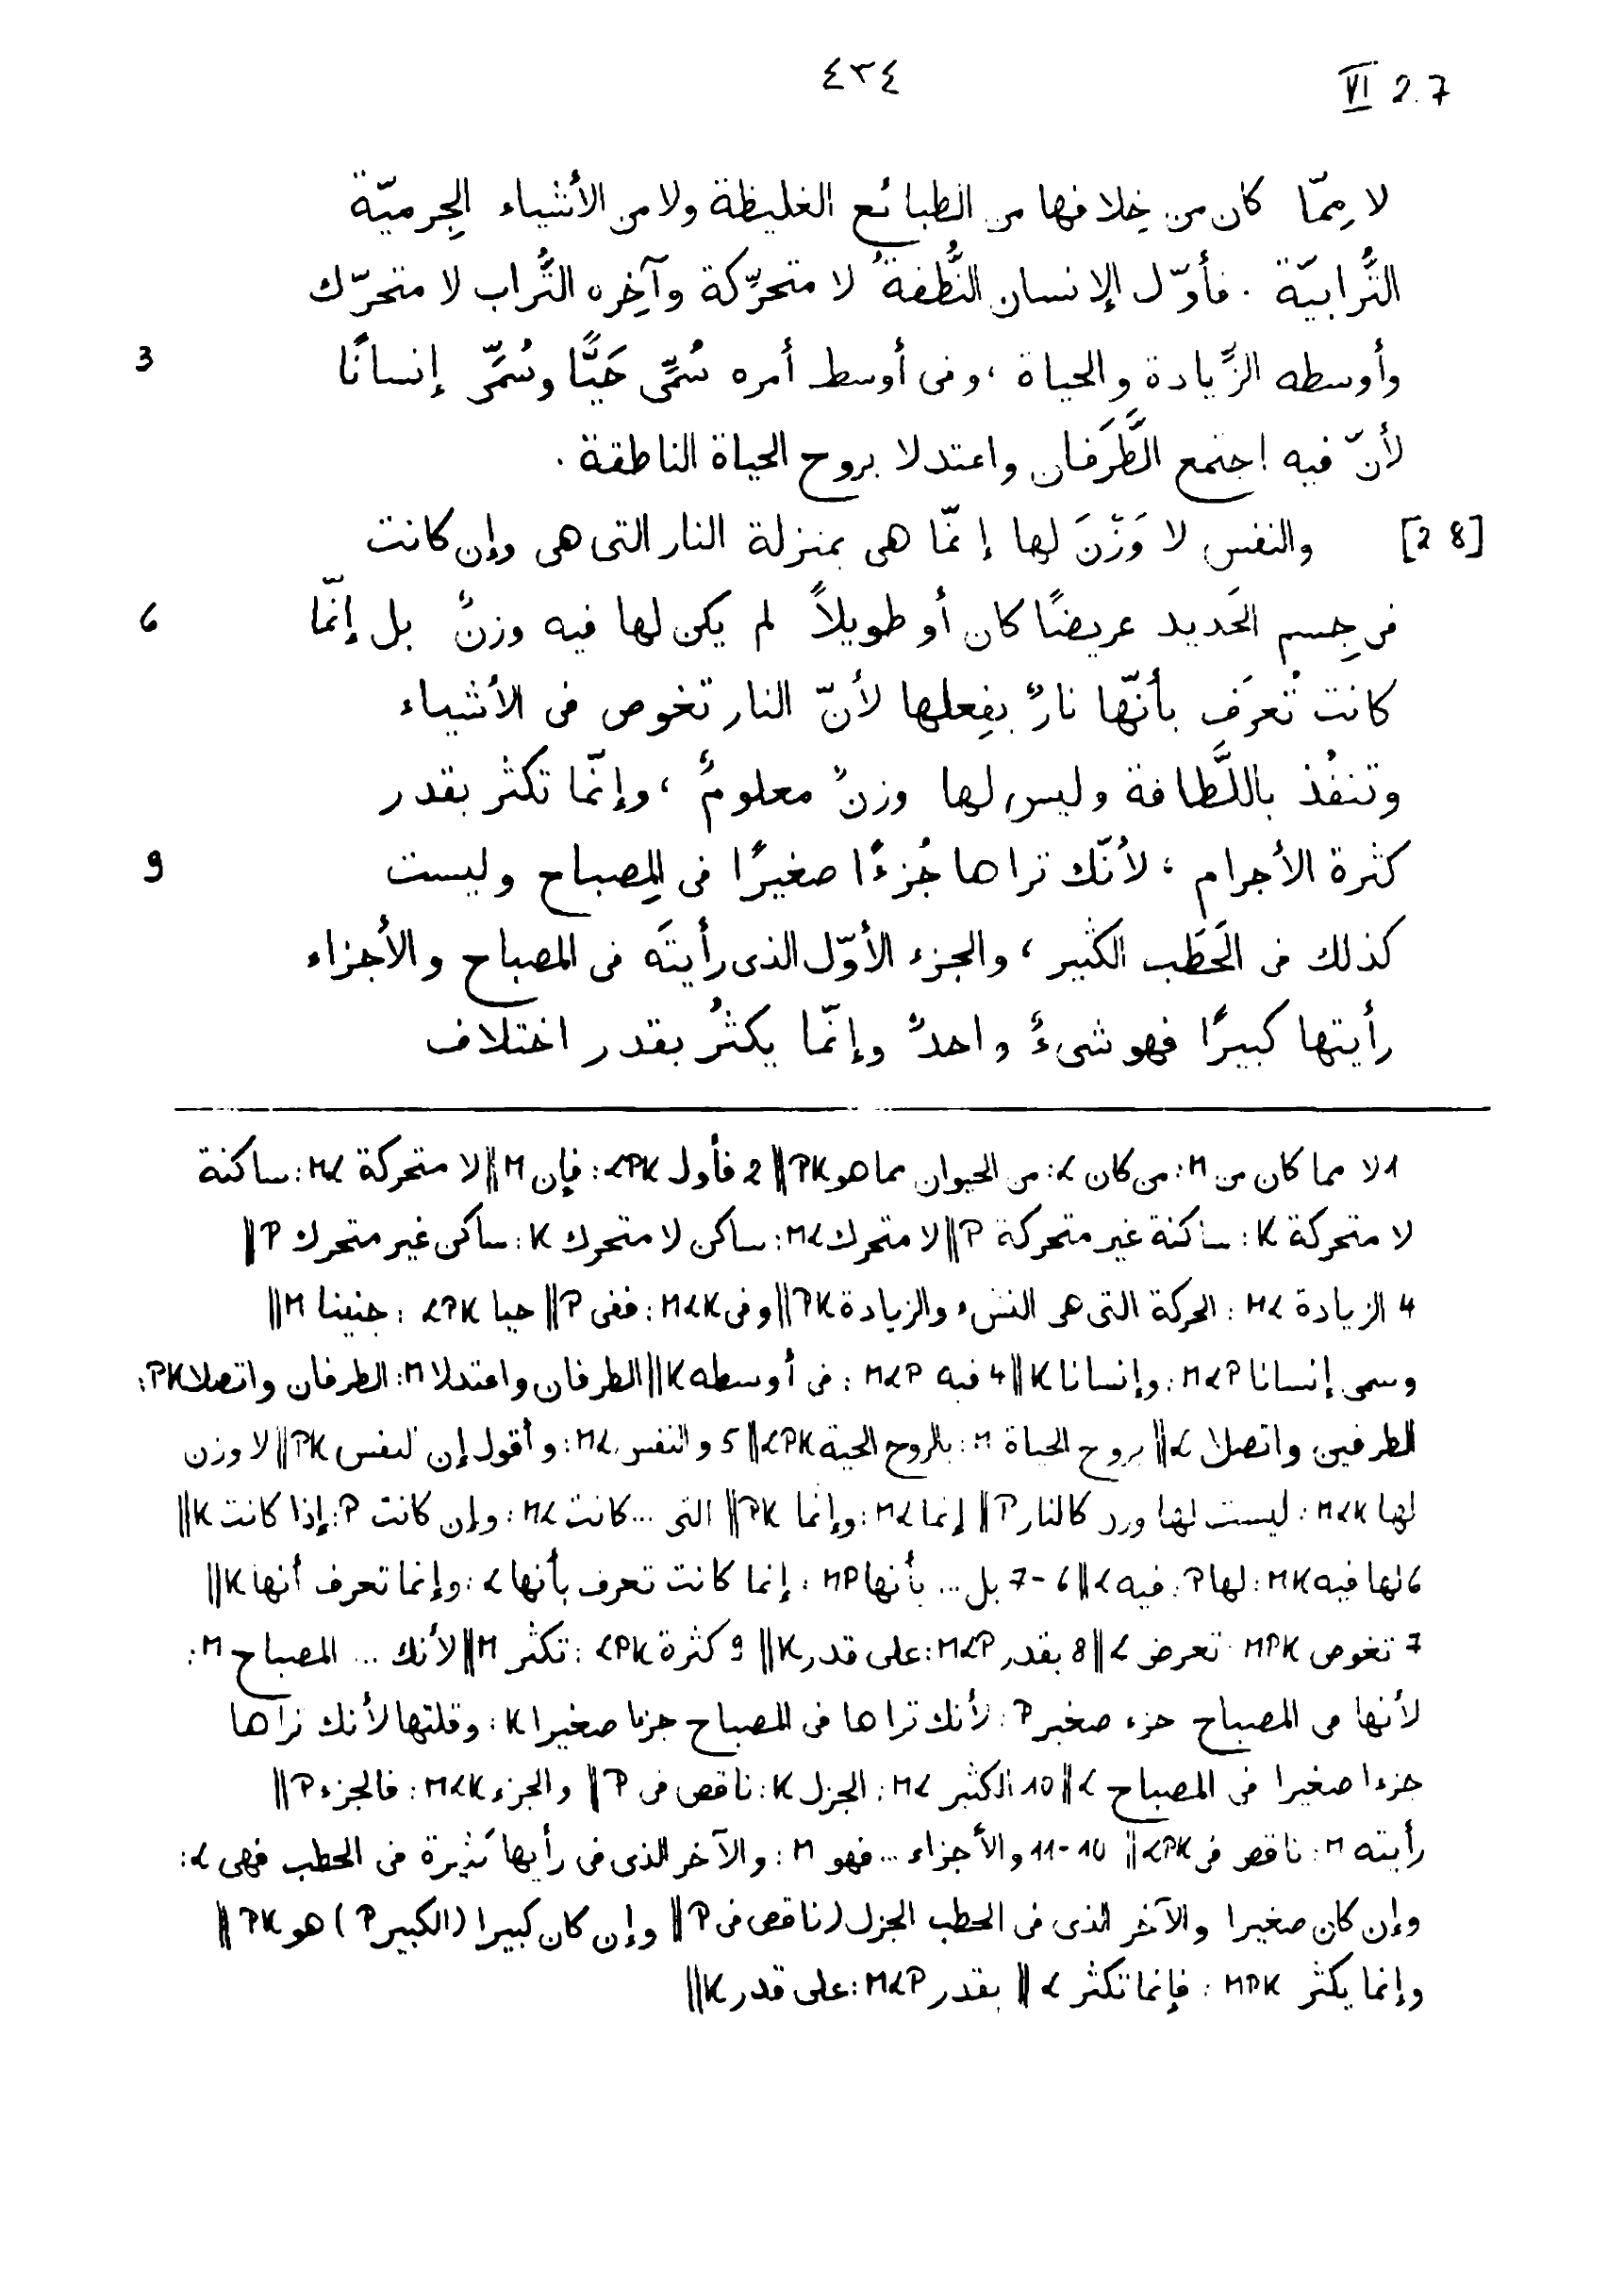 ٤٣٤
VI 2.7
لا مِمّا كان من خِلافها من الطبائع الغليظة ولا من الأشياء الجِرميّة
التُّرابيّة . فأوّل الإنسان النُّطفةُ لا متحرِّكة وآخِره التُّراب لا متحرّك
3 وأوسطه الزِّيادة والحياة ، وفى أوسط أمره سُمِّى حَيًّا وسُمِّى إنسانًا
لأنّ فيه اجتمع الطَّرَفان واعتدلا بروح الحياة الناطقة .
[28] والنفس لا وَزْنَ لها إنّما هى بمنزلة النار التى هى وإن كانت
6 فى جِسم الحَديد عريضًا كان أو طويلاً لم يكن لها فيه وزنٌ بل إنّما
كانت تُعرَف بأنّها نارٌ بفِعلها لأنّ النار تغوص فى الأشياء
وتنفُذ باللَّطافة وليس لها وزنٌ معلومٌ ، وإنّما تكثر بقدر
9 كثرة الأجرام ، لأنّك تراها جُزءًا صغيرًا فى المِصباح وليست
كذلك فى الحَطَب الكثير ، والجزء الأوّل الذى رأيتَه فى المصباح والأجزاء
رأيتها كبيرًا فهو شىءٌ واحدٌ وإنّما يكثُر بقدر اختلاف
1 لا مما كان من M : من كان L : من الحيوان مما هو PK || 2 فأول LPK : فإن M || لا متحركة ML : ساكنة
لا متحركة K : ساكنة غير متحركة P || لا متحرك ML : ساكن لا متحرك K : ساكن غير متحرك P ||
4 الزيادة ML : الحركة التى هى النشء والزيادة PK || وفى MLK : ففى P || حيا LPK : جنينا M ||
وسمى إنسانا MLP : وإنسانا K || 4 فيه MLP : فى أوسطه K || الطرفان واعتدلا M : الطرفان واتصلا PK :
الطرفين واتصلا L || بروح الحياة M : بالروح الحية LPK || 5 والنفس ML : وأقول إن النفس PK || لا وزن
لها MLK : ليست لها ورد كالنار P || إنما ML : وإنما PK || التى ... كانت ML : وإن كانت P : إذا كانت K ||
6 لها فيه MK : لها P : فيه L || 6-7 بل ... بأنها MP : إنما كانت تعرف بأنها L : وإنما تعرف أنها K ||
7 تغوص MPK : تعرض L || 8 بقدر MLP : على قدر K || 9 كثرة LPK : تكثر M || لأنك ... المصباح M :
لأنها فى المصباح جزء صغير P : لأنك تراها فى المصباح جزءا صغيرا K : وقلتها لأنك تراها
جزءا صغيرا فى المصباح L || 10 الكثير ML : الجزل K : ناقص فى P || والجزء MLK : فالجزء P ||
رأيته M : ناقص فى LPK || 10-11 والأجزاء ... فهو M : والآخر الذى فى رأيها كثيرة فى الحطب فهى L :
وإن كان صغيرا والآخر الذى فى الحطب الجزل (ناقص فى P || وإن كان كبيرا (الكبير P) هو PK ||
وإنما يكثر MPK : فإنما تكثر L || بقدر MLP : على قدر K ||